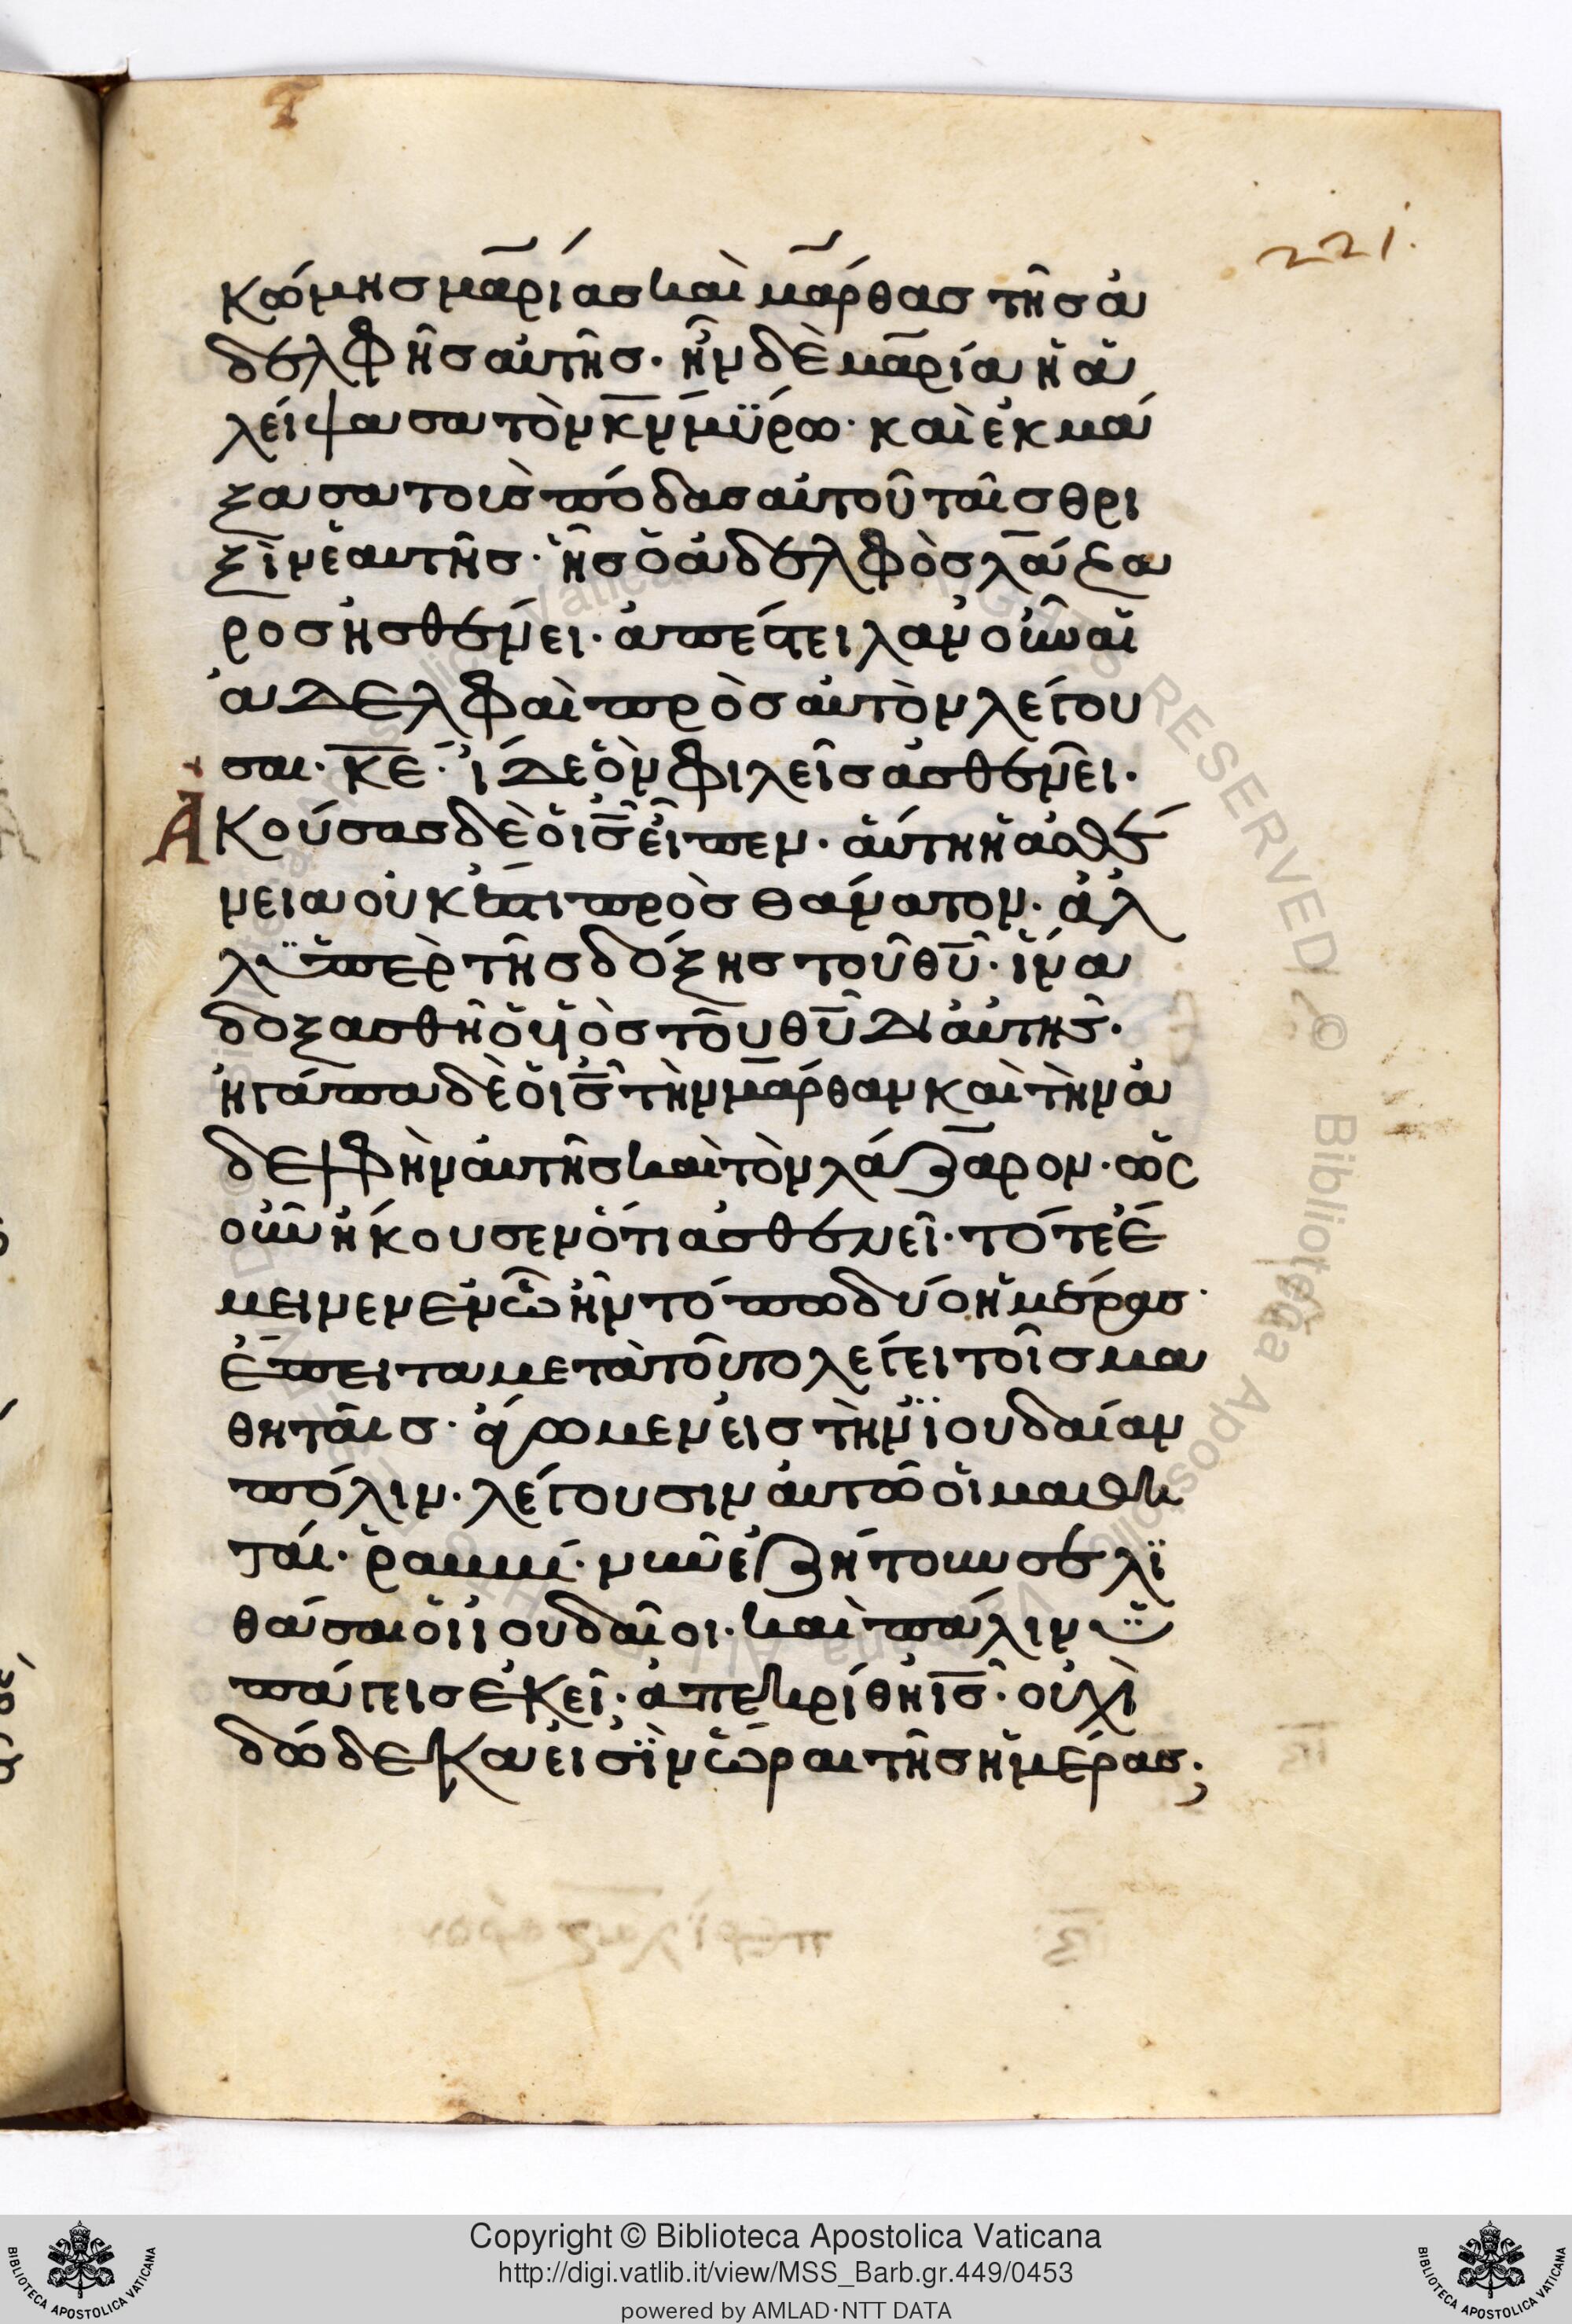 221.
κώμησ μαρίασ καὶ μάρθασ τῆσ ἀ
δελφῆσ αὐτῆσ· ἦν δὲ μαρία ἡ ἀ
λείψασα τὸν κν μύρω· καὶ ἐκμά
ξασα τοὺσ πόδασ αὐτοῦ ταῖσ θρι
ξὶν ἑαυτῆσ· ἧσ ὁ ἀδελφὸσ λάζα
ροσ ἠσθένει· ἀπέστειλαν οὖν αἱ
ἀδελφαὶ πρὸσ αὐτὸν λέγου
σαι· κε· ἴδε ὃν φιλεῖσ ἀσθενεῖ·
Ἀκούσασ δὲ ὁ ισ εἶπεν· αὕτη ἡ ἀσθέ
νεια οὐκ ἔστι πρὸσ θάνατον· ἀλ
λ' ὑπὲρ τῆσ δόξησ τοῦ θυ· ἵνα
δοξασθῆ ὁ υἱὸσ τοῦ θυ δι αὐτῆσ·
ἠγάπα δὲ ὁ ισ τὴν μάρθαν καὶ τὴν ἀ
δελφὴν αὐτῆσ καὶ τὸν λάζαρον· ὡσ
οὖν ἤκουσεν ὅτι ἀσθενεῖ· τότε ἔ
μεινεν ἐν ὧ ἦν τόπω δύο ἡμέρασ·
ἔπειτα μετὰ τοῦτο λέγει τοῖσ μα
θηταῖσ· ἄγωμεν εἰσ τὴν ϊουδαίαν
πάλιν· λέγουσιν αὐτῶ οἱ μαθη
ταί· ῥαββί· νῦν ἐζήτουν σε λϊ
θάσαι οἱ ἰουδαῖοι· καὶ πάλιν ὑ
πάγεισ ἐκεῖ· ἀπεκρίθη ισ· οὐχὶ
δώδεκα εἰσὶν ὧραι τῆσ ἡμέρασ;
Copyright © Biblioteca Apostolica Vaticana
http://digi.vatlib.it/view/MSS_Barb.gr.449/0453
powered by AMLAD·NTT DATA
BIBLIOTECA APOSTOLICA VATICANA
BIBLIOTECA APOSTOLICA VATICANA